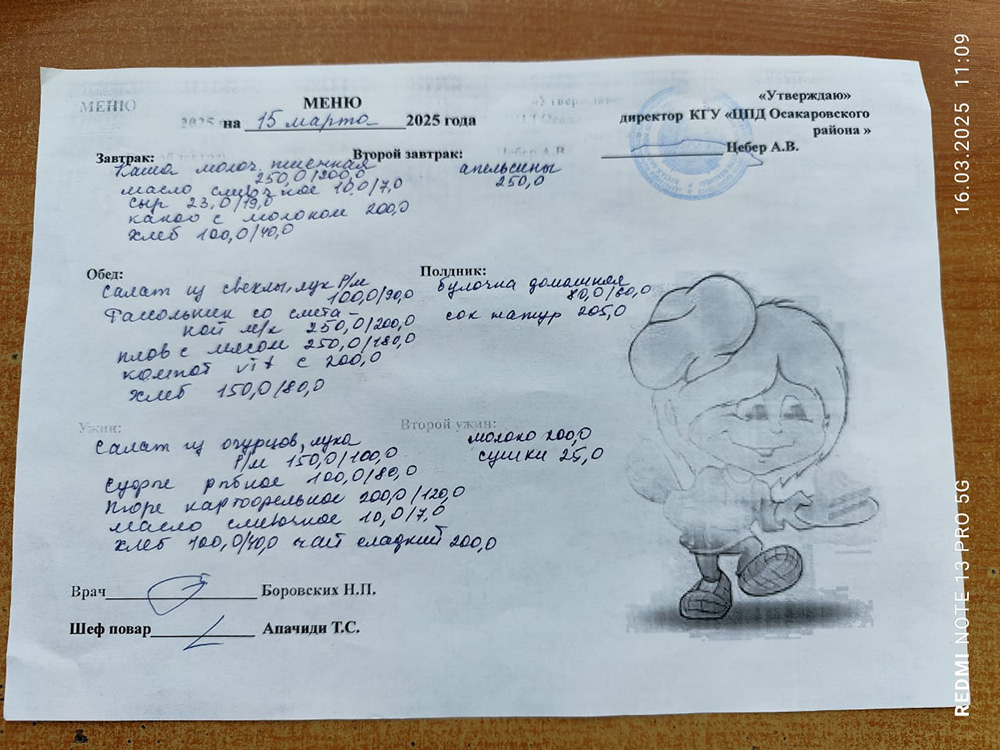 МЕНЮ
на 15 марта 2025 года
«Утверждаю»
директор КГУ «ЦПД Осакаровского
района »
Цебер А.В.
Завтрак:
Каша молоч. пшенная
250,0/200,0
масло сливочное 10,0/7,0
сыр 23,0/19,0
какао с молоком 200,0
хлеб 100,0/40,0
Второй завтрак:
апельсины
250,0
Обед:
Салат из свеклы, лук Р/м
100,0/90,0
Рассольник со смета-
ной м/к 250,0/200,0
плов с мясом 250,0/180,0
компот vit с 200,0
Хлеб 150,0/80,0
Полдник:
булочка домашняя
80,0/60,0
сок натур 205,0
Ужин:
Салат из огурцов, лука
Р/м 150,0/100,0
Суфле рыбное 100,0/80,0
Пюре картофельное 200,0/120,0
масло сливочное 10,0/7,0
Хлеб 100,0/40,0 чай сладкий 200,0
Второй ужин:
молоко 200,0
сушки 25,0
Врач Боровских Н.П.
Шеф повар Апачиди Т.С.
МЕНЮ
16.03.2025 11:09
REDMI NOTE 13 PRO 5G